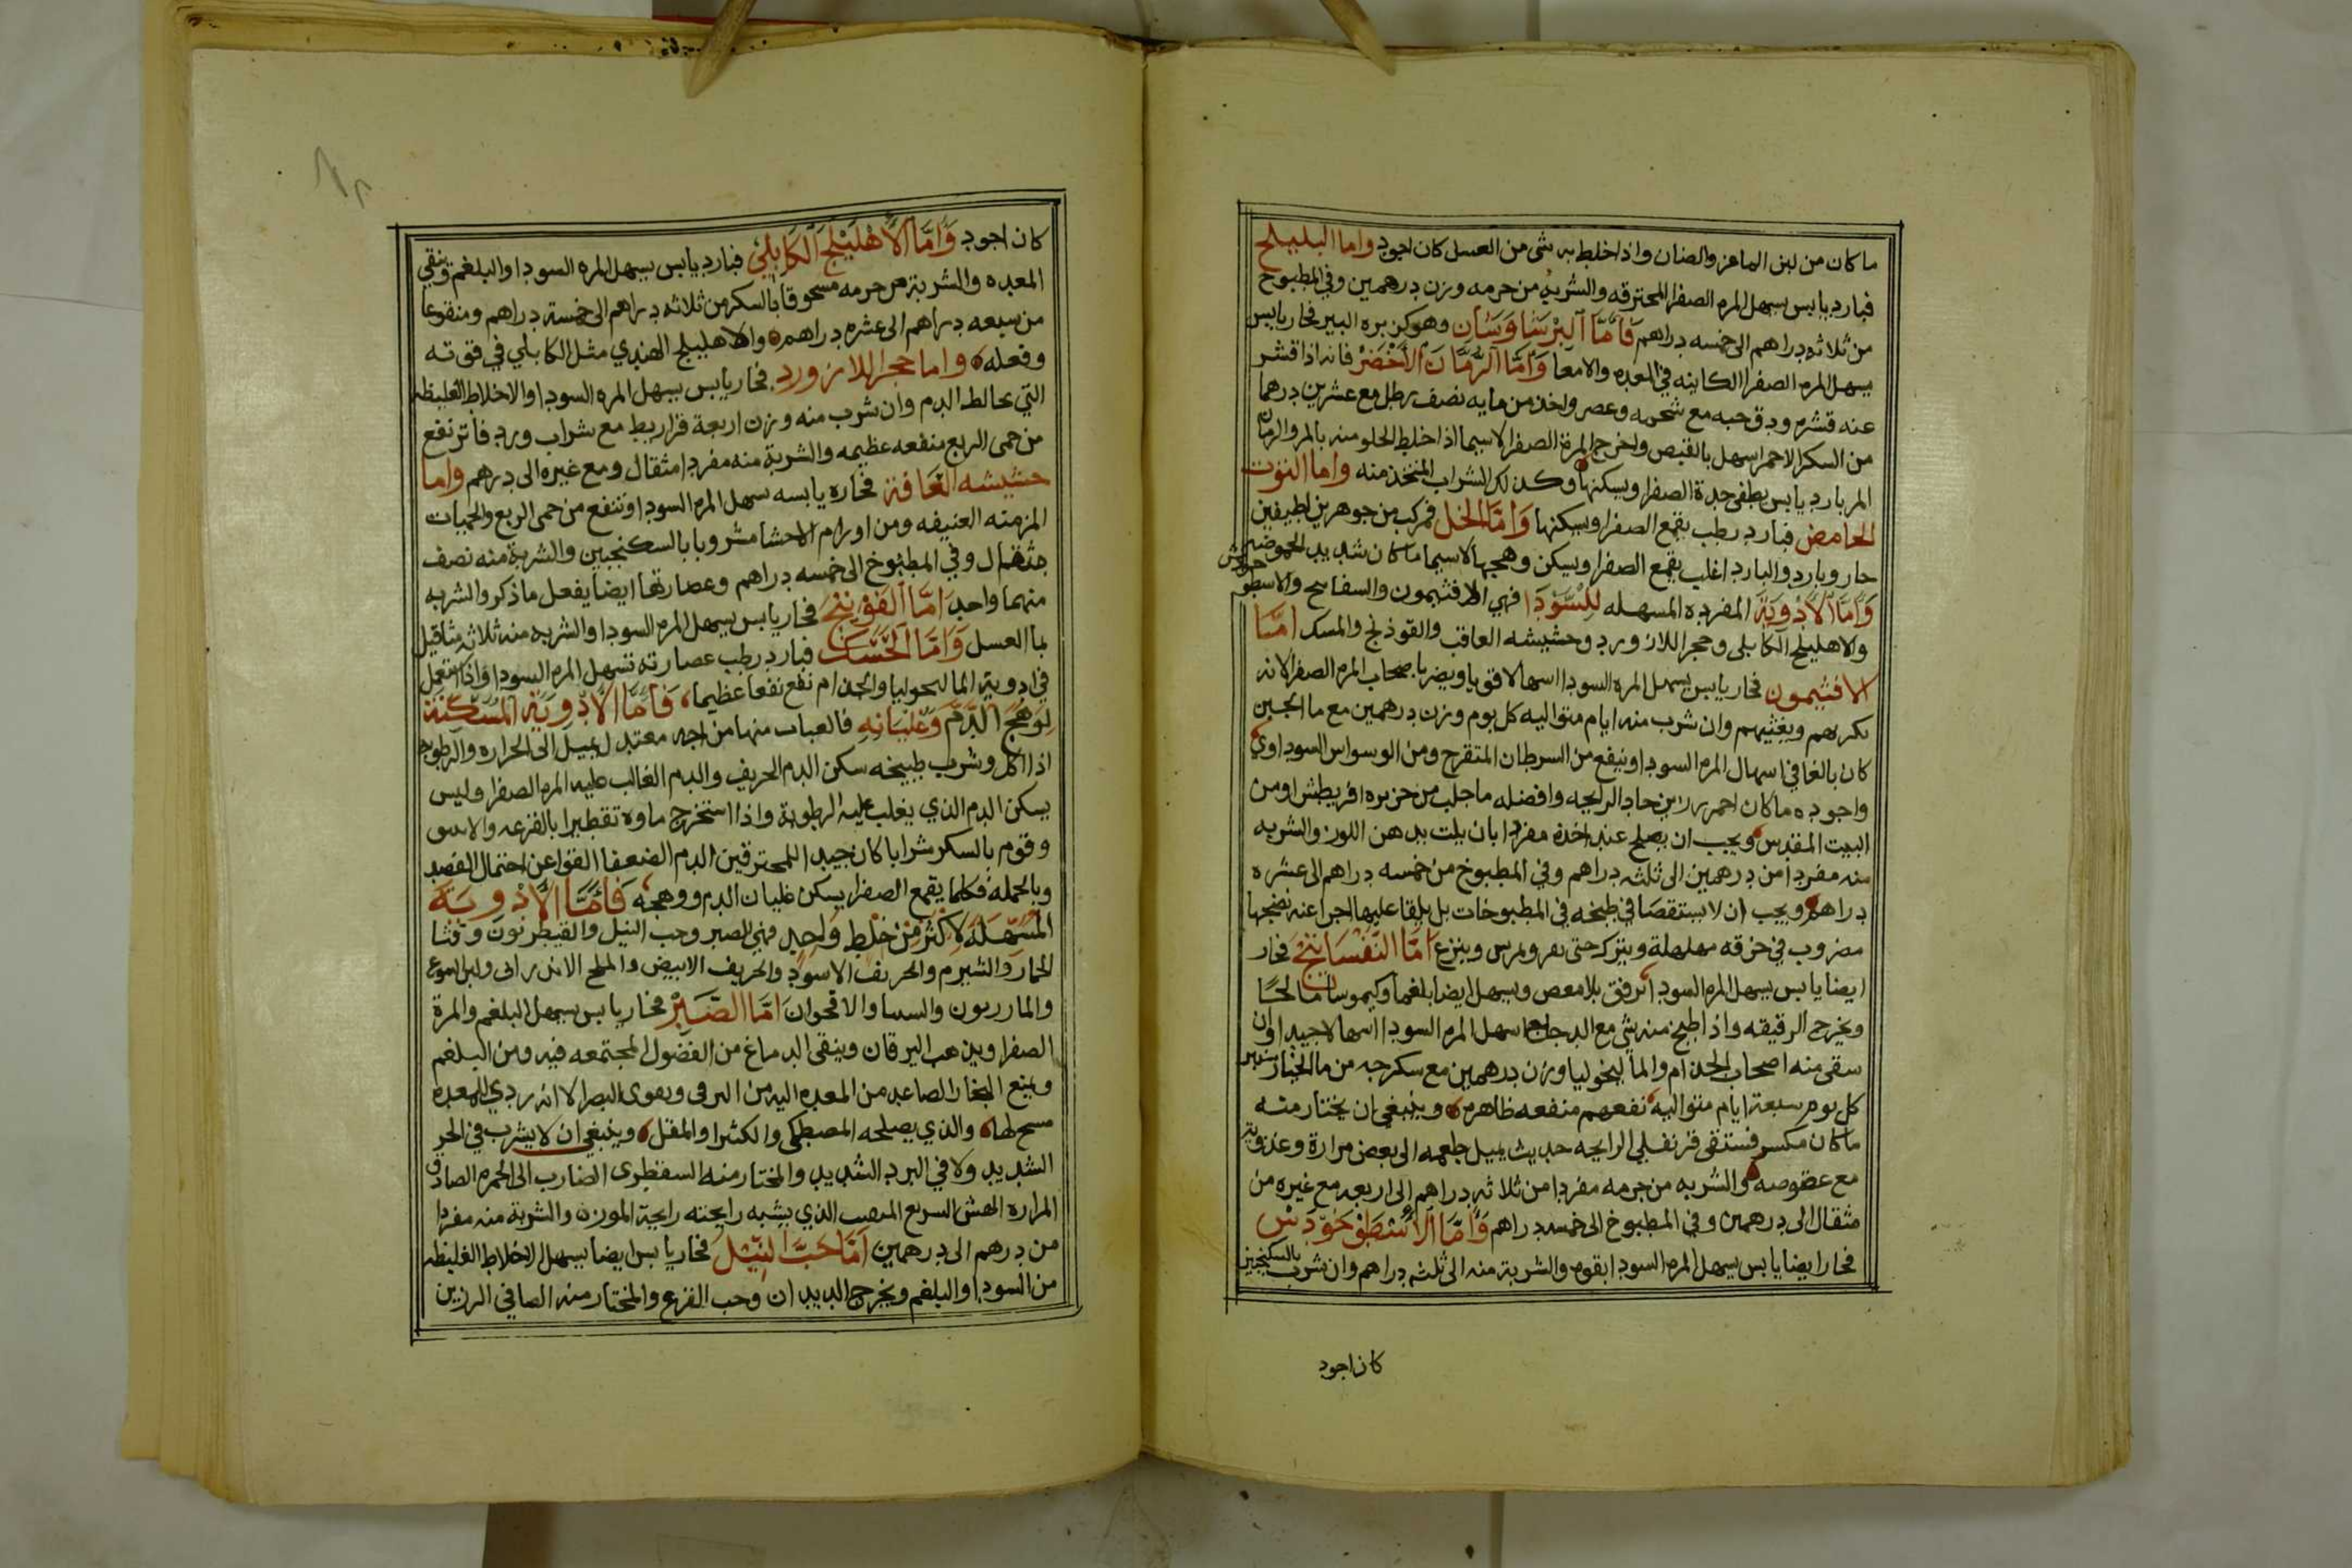 ما كان من لبن الماعز والضان واذا خلط به شي من العسل كان اجود واما البليلج
فبارد يابس يسهل المره الصفرا المحترقه والشربه من جرمه وزن درهمين وفي المطبوخ
من ثلاثه دراهم الى خمسه دراهم فَامَّا البَرْسَيَاوَسَان وهو كزبره البير فحار يابس
يسهل المره الصفرا الكاينه في المعده والامعا وَامَّا الرُّمَّان الاَخْضَر فانه اذا قشر
عنه قشره ودق حبه مع شحمه وعصر واخذ من مايه نصف رطل مع عشرين درهما
من السكر الاحمر اسهل بالقبض واخرج المرة الصفرا لاسيما اذا خلط الحلو منه بالمر والرمان
المر بارد يابس يطفي حدة الصفرا ويسكنها وكذلك الشراب المتخذ منه واما التوت
الحامض فبارد رطب يقمع الصفرا ويسكنها وَامَّا الخل فمركب من جوهرين لطيفين
حار وبارد والبارد اغلب يقمع الصفرا ويسكن وهجها لاسيما ما كان شديد الحموضه
وَامَّا الاَدْوِيَة المفرده المسهله لِلسَّوْدَا فهي الافثيمون والسفايج والاسطوخودس
والاهليلج الكابلي وحجر اللازورد وحشيشه الغافت والفوذنج والحسك امَّا
الافثيمون فحار يابس يسهل المره السودا اسهالا قويا ويضر باصحاب المره الصفرا لانه
يكربهم ويغثيهم وان شرب منه ايام متواليه كل يوم وزن درهمين مع ما الجبن
كان بالغا في اسهال المره السودا وينفع من السرطان المتقرح ومن الوسواس السوداوي
واجوده ما كان احمر رزين حاد الرايحه وافضله ما جلب من جزيره اقريطش او من
البيت المقدس ويجب ان يصلح عند اخذه مفردا بان يلت بدهن اللوز والشربه
منه مفردا من درهمين الى ثلثه دراهم وفي المطبوخ من خمسه دراهم الى عشره
دراهم ويجب ان لا يستقصا في طبخه في المطبوخات بل يلقا عليها اجزا عند نضجها
مضروب في خرقه مهلهلة ويترك حتى يمرس وينزع امَّا البَسْفَايَجْ فحار
ايضا يابس يسهل المره السودا برفق بلا مغص ويسهل ايضا بلغما وكيموسا مالحًا
ويخرج الرقيقه واذا طبخ منه شي مع الدجاج اسهل المره السودا اسهالا جيدا وان
سقي منه اصحاب الجذام والماليخوليا وزن درهمين مع سكرجه من ما الخيارشنبر
كل يوم سبعة ايام متواليه نفعهم منفعه ظاهره وينبغي ان يختار منه
ما كان مكسره فستقي قرنفلي الرايحه حديث يميل طعمه الى بعض مرارة وعذوبة
مع عفوصه والشربه من جرمه مفردا من ثلاثه دراهم الى اربعه مع غيره من
مثقال الى درهمين وفي المطبوخ الى خمسه دراهم وَامَّا الاُسْطُوخُودَس
فحار ايضا يابس يسهل المره السودا بقوه والشربة منه الى ثلثه دراهم وان شرب بالسكنجبين
كان اجود
كان اجود وَامَّا الاَهْلِيلَج الكَابِلي فبارد يابس يسهل المره السودا والبلغم وينقي
المعده والشربة من جرمه مسحوقا بالسكر من ثلاثه دراهم الى خمسة دراهم ومنقوعا
من سبعه دراهم الى عشره دراهم والاهليلج الهندي مثل الكابلي في قوته
وفعله واما حجر اللازورد فحار يابس يسهل المره السودا والاخلاط الغليظه
التي تخالط الدم وان شرب منه وزن اربعة قراريط مع شراب ورد فاتر نفع
من حمى الربع منفعه عظيمه والشربة منه مفردا مثقال ومع غيره الى درهم واما
حشيشه الغَافة فحاره يابسه تسهل المره السودا وتنفع من حمى الربع والحميات
المزمنه العنيفه ومن اورام الاحشا مشروبا بالسكنجبين والشربة منه نصف
مثقال وفي المطبوخ الى خمسه دراهم وعصارتها ايضا يفعل ما ذكر والشربه
منهما واحد امَّا الفَوْذَنْج فحار يابس يسهل المره السودا والشربه منه ثلاثه مثاقيل
بما العسل وَامَّا الحَسَك فبارد رطب عصارته تسهل المره السودا واذا استعمل
في ادوية الماليخوليا والجذام نفع نفعا عظيما فَامَّا الاَدْوِيَة المُسَكِّنَة
لِوَهْجِ الدَّمِ وَغَلَيَانِهِ فالعناب منها مزاجه معتدل يميل الى الحراره والرطوبه
اذا اكل وشرب طبيخه سكن الدم الحريف والدم الغالب عليه المره الصفرا وليس
يسكن الدم الذي يغلب عليه الرطوبة واذا استخرج ماوه تقطيرا بالقرعه والانبيق
وقوم بالسكر شرابا كان جيدا للمحترقين الدم الضعفا القوا عن احتمال الفصد
وبالجمله فكلما يقمع الصفرا يسكن غليان الدم ووهجه فَامَّا الاَدوِيَة
المُسْهِلَة لاَكْثَر مِنْ خَلْطٍ وَاحِدٍ فهي الصبر وحب النيل والقنطريون وقثا
الحمار والشبرم والخربق الاسود والخربق الابيض والملح الاندراني ولبن اليتوع
والمازريون والسنا والاقحوان امَّا الصَّبِرْ فحار يابس يسهل البلغم والمرة
الصفرا ويذهب اليرقان وينقي الدماغ من الفضول المجتمعه فيه ومن البلغم
ويمنع البخار الصاعد من المعده اليه من الترقي ويقوي البصر الا انه ردي للمعده
مسحج لها والذي يصلحه المصطكي والكثيرا والمقل وينبغي ان لا يشرب في الحر
الشديد ولا في البرد الشديد والمختار منه السقطري الضارب الى الحمره الصادق
المراره الهش السريع الذي يشبه رايحته رايحة المر والشربة منه مفردا
من درهم الى درهمين امَّا حَبَّ النِّيْل فحار يابس ايضا يسهل الاخلاط الغليظه
من السودا والبلغم ويخرج الديدان وحب القرع والمختار منه الصافي الرزين